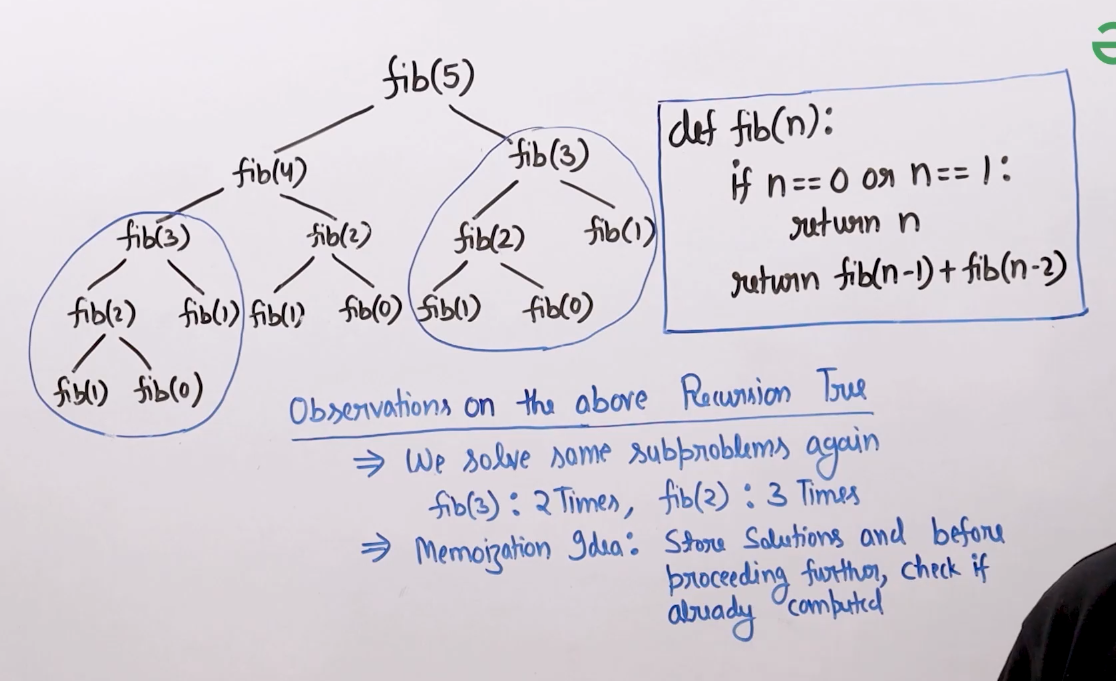 fib(5)
fib(4) fib(3)
fib(3) fib(2) fib(2) fib(1)
fib(2) fib(1) fib(1) fib(0) fib(1) fib(0)
fib(1) fib(0)
def fib(n):
if n==0 or n==1:
return n
return fib(n-1)+fib(n-2)
Observations on the above Recursion Tree
⇒ We solve some subproblems again
fib(3): 2 Times, fib(2): 3 Times
⇒ Memoization Idea: Store Solutions and before
proceeding further, check if
already computed